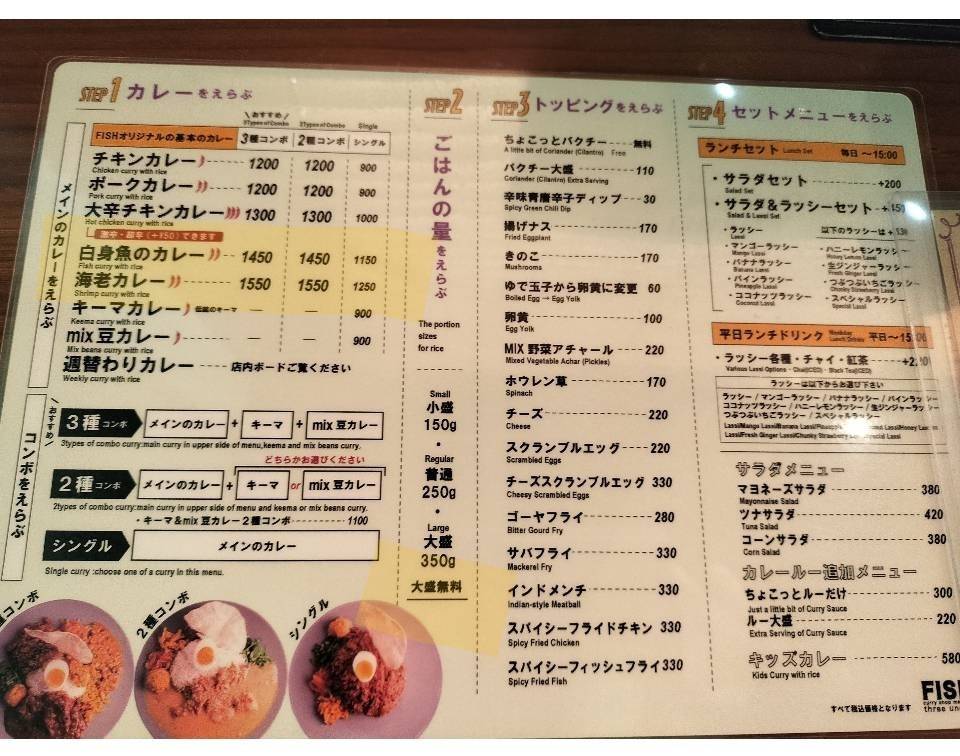 STEP1 カレーをえらぶ
メインのカレーをえらぶ
FISHオリジナルの基本のカレー
\おすすめ/
3Types of Combo
3種コンボ
2Types of Combo
2種コンボ
Single
シングル
チキンカレー 1200 1200 900
Chicken curry with rice
ポークカレー 1200 1200 900
Pork curry with rice
大辛チキンカレー 1300 1300 1000
Hot chicken curry with rice
激辛・超辛(+¥50)できます
白身魚のカレー 1450 1450 1150
Fish curry with rice
海老カレー 1550 1550 1250
Shrimp curry with rice
キーマカレー 伝統のキーマ — — 900
Keema curry with rice
mix 豆カレー — — 900
Mix beans curry with rice
週替わりカレー 店内ボードご覧ください
Weekly curry with rice
\おすすめ/
コンボをえらぶ
3種コンボ メインのカレー + キーマ + mix 豆カレー
3types of combo curry:main curry in upper side of menu,keema and mix beans curry.
どちらかお選びください
2種コンボ メインのカレー + キーマ or mix 豆カレー
2types of combo curry:main curry in upper side of menu and keema or mix beans curry.
・キーマ&mix 豆カレー2種コンボ 1100
シングル メインのカレー
Single curry :choose one of a curry in this menu.
種コンボ
2種コンボ
シングル
STEP2
ごはんの量をえらぶ
The portion
sizes
for rice
Small
小盛
150g
・
Regular
普通
250g
・
Large
大盛
350g
大盛無料
STEP3 トッピングをえらぶ
ちょこっとパクチー 無料
A little bit of Coriander (Cilantro) Free
パクチー大盛 110
Coriander (Cilantro) Extra Serving
辛味青唐辛子ディップ 30
Spicy Green Chili Dip
揚げナス 170
Fried Eggplant
きのこ 170
Mushrooms
ゆで玉子から卵黄に変更 60
Boiled Egg → Egg Yolk
卵黄 100
Egg Yolk
MIX 野菜アチャール 220
Mixed Vegetable Achar (Pickles)
ホウレン草 170
Spinach
チーズ 220
Cheese
スクランブルエッグ 220
Scrambled Eggs
チーズスクランブルエッグ 330
Cheesy Scrambled Eggs
ゴーヤフライ 280
Bitter Gourd Fry
サバフライ 330
Mackerel Fry
インドメンチ 330
Indian-style Meatball
スパイシーフライドチキン 330
Spicy Fried Chicken
スパイシーフィッシュフライ 330
Spicy Fried Fish
STEP4 セットメニューをえらぶ
ランチセット Lunch Set 毎日 〜15:00
・サラダセット +200
Salad Set
・サラダ&ラッシーセット
Salad & Lassi Set
・ラッシー
Lassi
・マンゴーラッシー
Mango Lassi
・バナナラッシー
Banana Lassi
・パインラッシー
Pineapple Lassi
・ココナッツラッシー
Coconut Lassi
以下のラッシーは
・ハニーレモンラッシー
Honey Lemon Lassi
・生ジンジャーラッシー
Fresh Ginger Lassi
・つぶつぶいちごラッシー
Chunky Strawberry Lassi
・スペシャルラッシー
Special Lassi
平日ランチドリンク Weekday Lunch Drinks 平日〜15:00
・ラッシー各種・チャイ・紅茶
Various Lassi Options・Chai(ICED)・Black Tea(ICED)
ラッシーは以下からお選び下さい
ラッシー / マンゴーラッシー / バナナラッシー / パインラッシー
ココナツラッシー / ハニーレモンラッシー / 生ジンジャーラッシー
つぶつぶいちごラッシー / スペシャルラッシー
サラダメニュー
マヨネーズサラダ 380
Mayonnaise Salad
ツナサラダ 420
Tuna Salad
コーンサラダ 380
Corn Salad
カレールー追加メニュー
ちょこっとルーだけ 300
Just a little bit of Curry Sauce
ルー大盛 220
Extra Serving of Curry Sauce
キッズカレー 580
Kids Curry with rice
すべて税込価格となります
FIS
curry shop
three